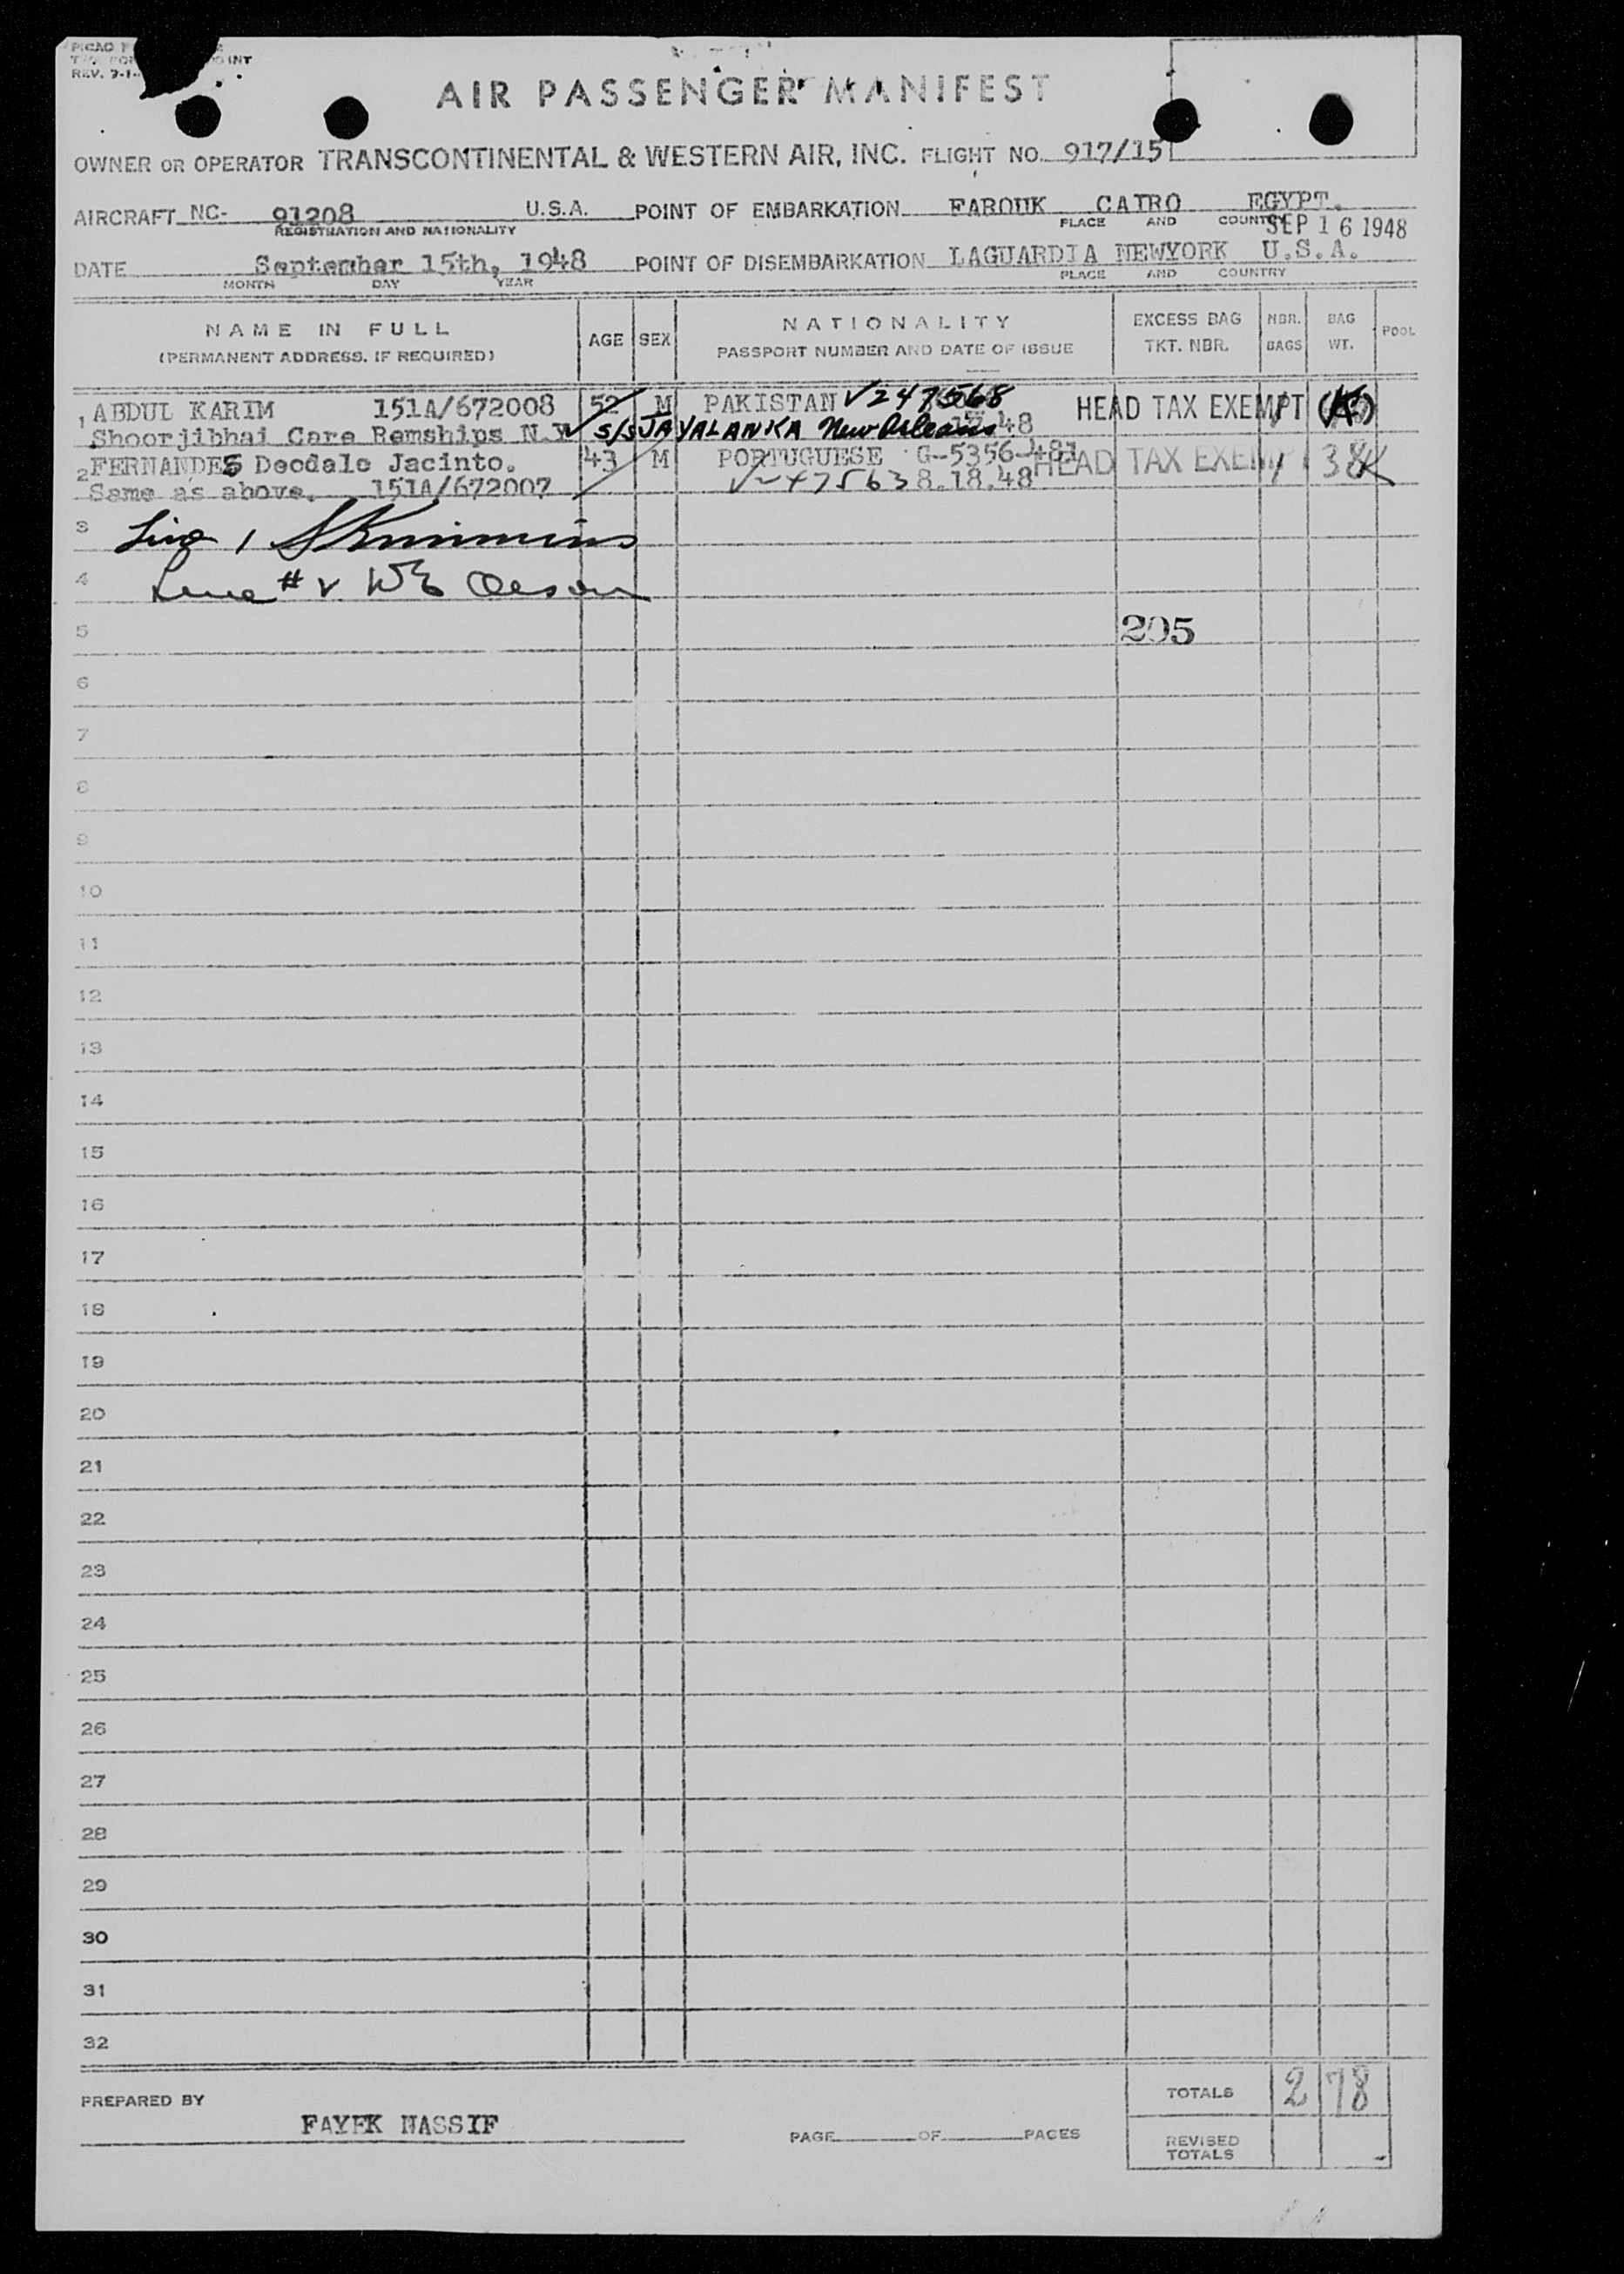 REV. 7-1-
AIR PASSENGER MANIFEST
OWNER OR OPERATOR TRANSCONTINENTAL & WESTERN AIR, INC. FLIGHT NO. 917/15
AIRCRAFT NC- 91208 U.S.A. POINT OF EMBARKATION FAROUK CAIRO EGYPT.
REGISTRATION AND NATIONALITY PLACE AND COUNTRY
SEP 16 1948
DATE September 15th, 1948 POINT OF DISEMBARKATION LAGUARDIA NEWYORK U.S.A.
MONTH DAY YEAR PLACE AND COUNTRY
NAME IN FULL AGE SEX NATIONALITY EXCESS BAG NBR. BAG POOL
(PERMANENT ADDRESS, IF REQUIRED) PASSPORT NUMBER AND DATE OF ISSUE TKT. NBR. BAGS WT.
1 ABDUL KARIM 151A/672008 52 M PAKISTAN V247568 HEAD TAX EXEMPT
Shoorjibhai Care Remships N.Y S/S JAYALANKA New Orleans 48
2 FERNANDES Deodalo Jacinto. 43 M PORTUGUESE G-5356-481 HEAD TAX EXEMPT 1 38K
Same as above. 151A/672007 8.18.48
3 Line 1
4 Line #
5 205
6
7
8
9
10
11
12
13
14
15
16
17
18
19
20
21
22
23
24
25
26
27
28
29
30
31
32
TOTALS 2 78
PREPARED BY FAYEK NASSIF
PAGE OF PAGES
REVISED TOTALS